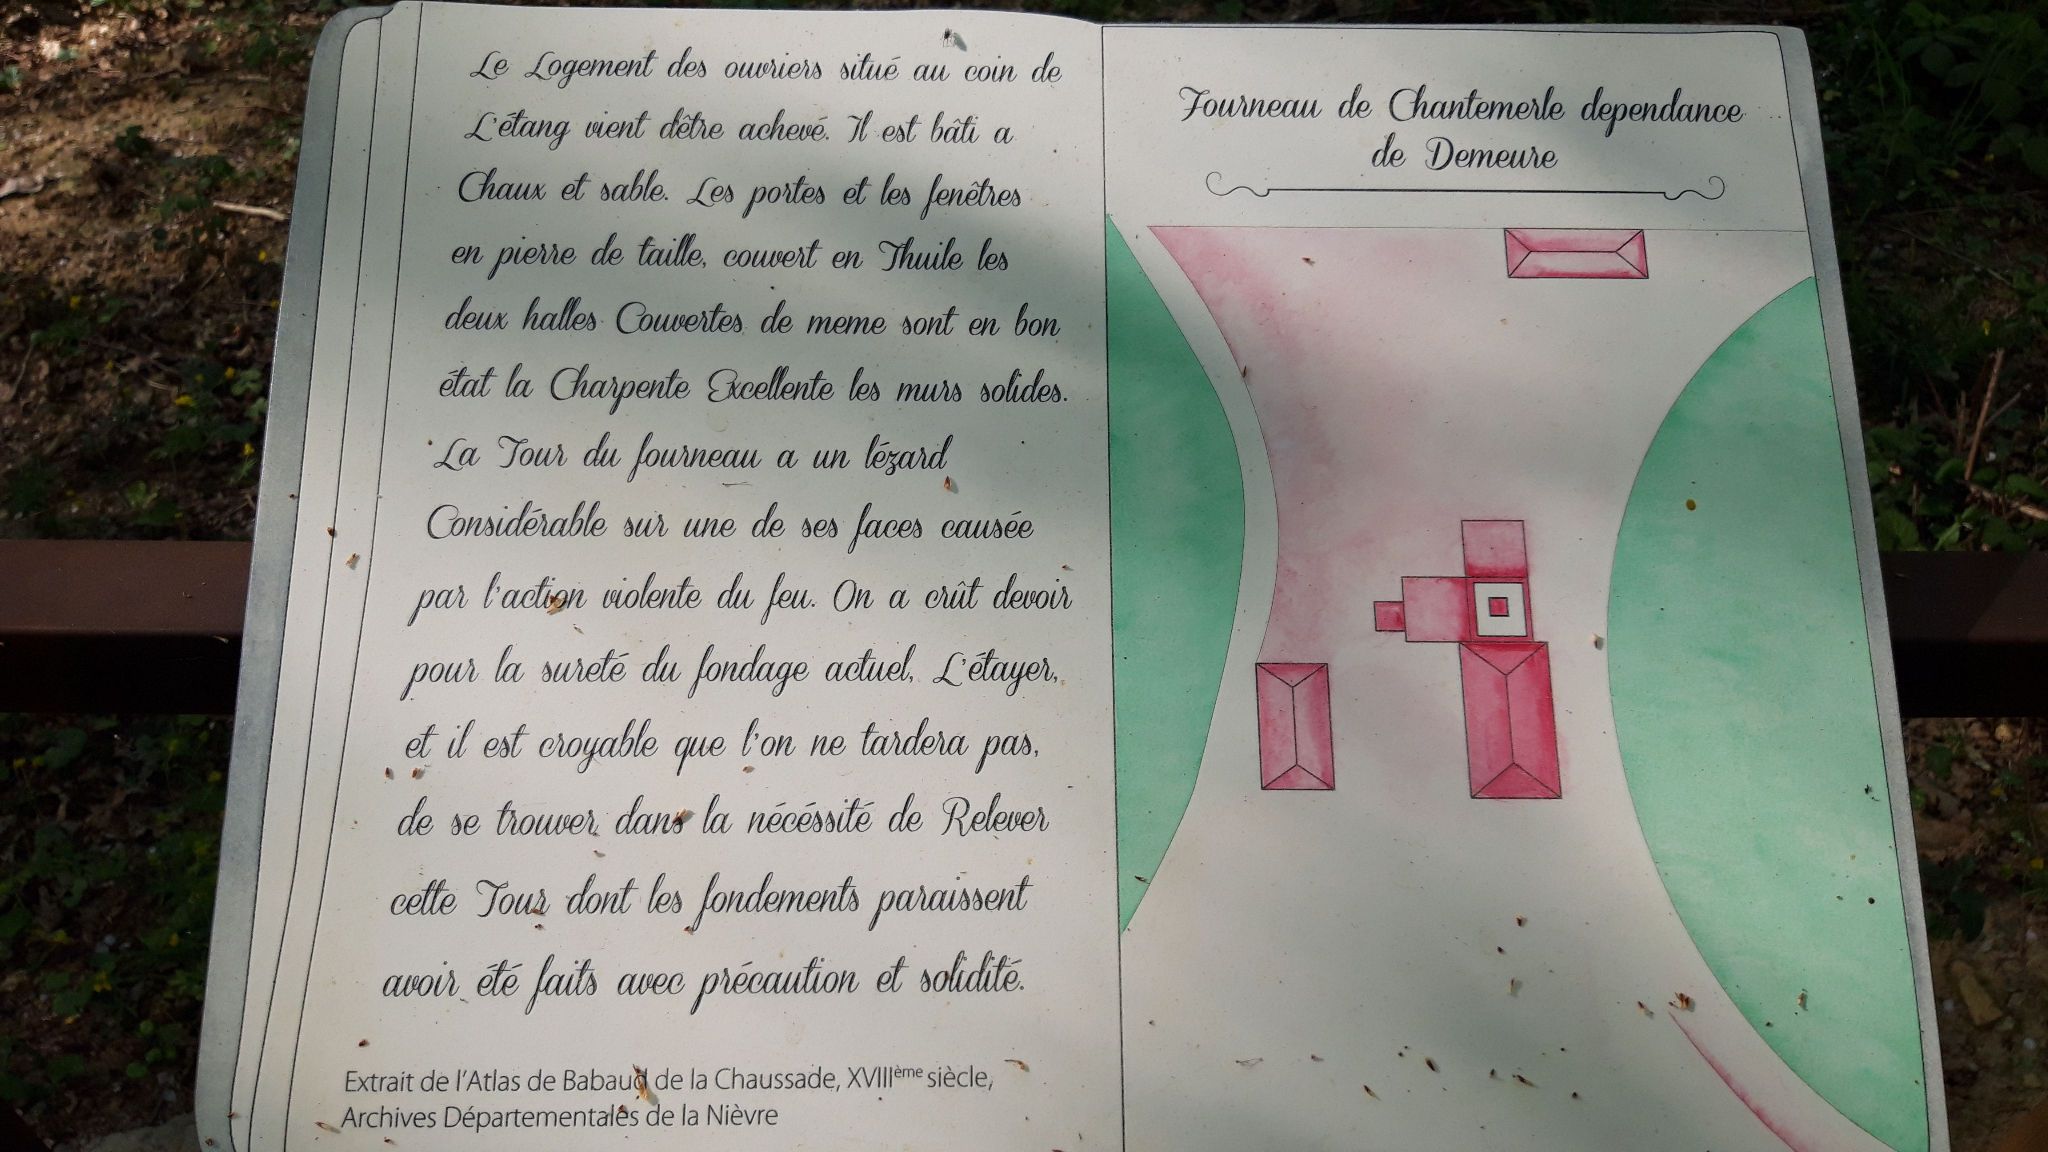 Le Logement des ouvriers situé au coin de
L'étang vient dêtre achevé. Il est bâti a
Chaux et sable. Les portes et les fenêtres
en pierre de taille, couvert en Thuile les
deux halles Couvertes de meme sont en bon
état la Charpente Excellente les murs solides.
La Tour du fourneau a un lézard
Considérable sur une de ses faces causée
par l'action violente du feu. On a crût devoir
pour la sureté du fondage actuel, L'étayer,
et il est croyable que l'on ne tardera pas,
de se trouver dans la nécéssité de Relever
cette Tour dont les fondements paraissent
avoir été faits avec précaution et solidité.
Extrait de l'Atlas de Babaud de la Chaussade, XVIIIème siècle,
Archives Départementales de la Nièvre
Fourneau de Chantemerle dependance
de Demeure